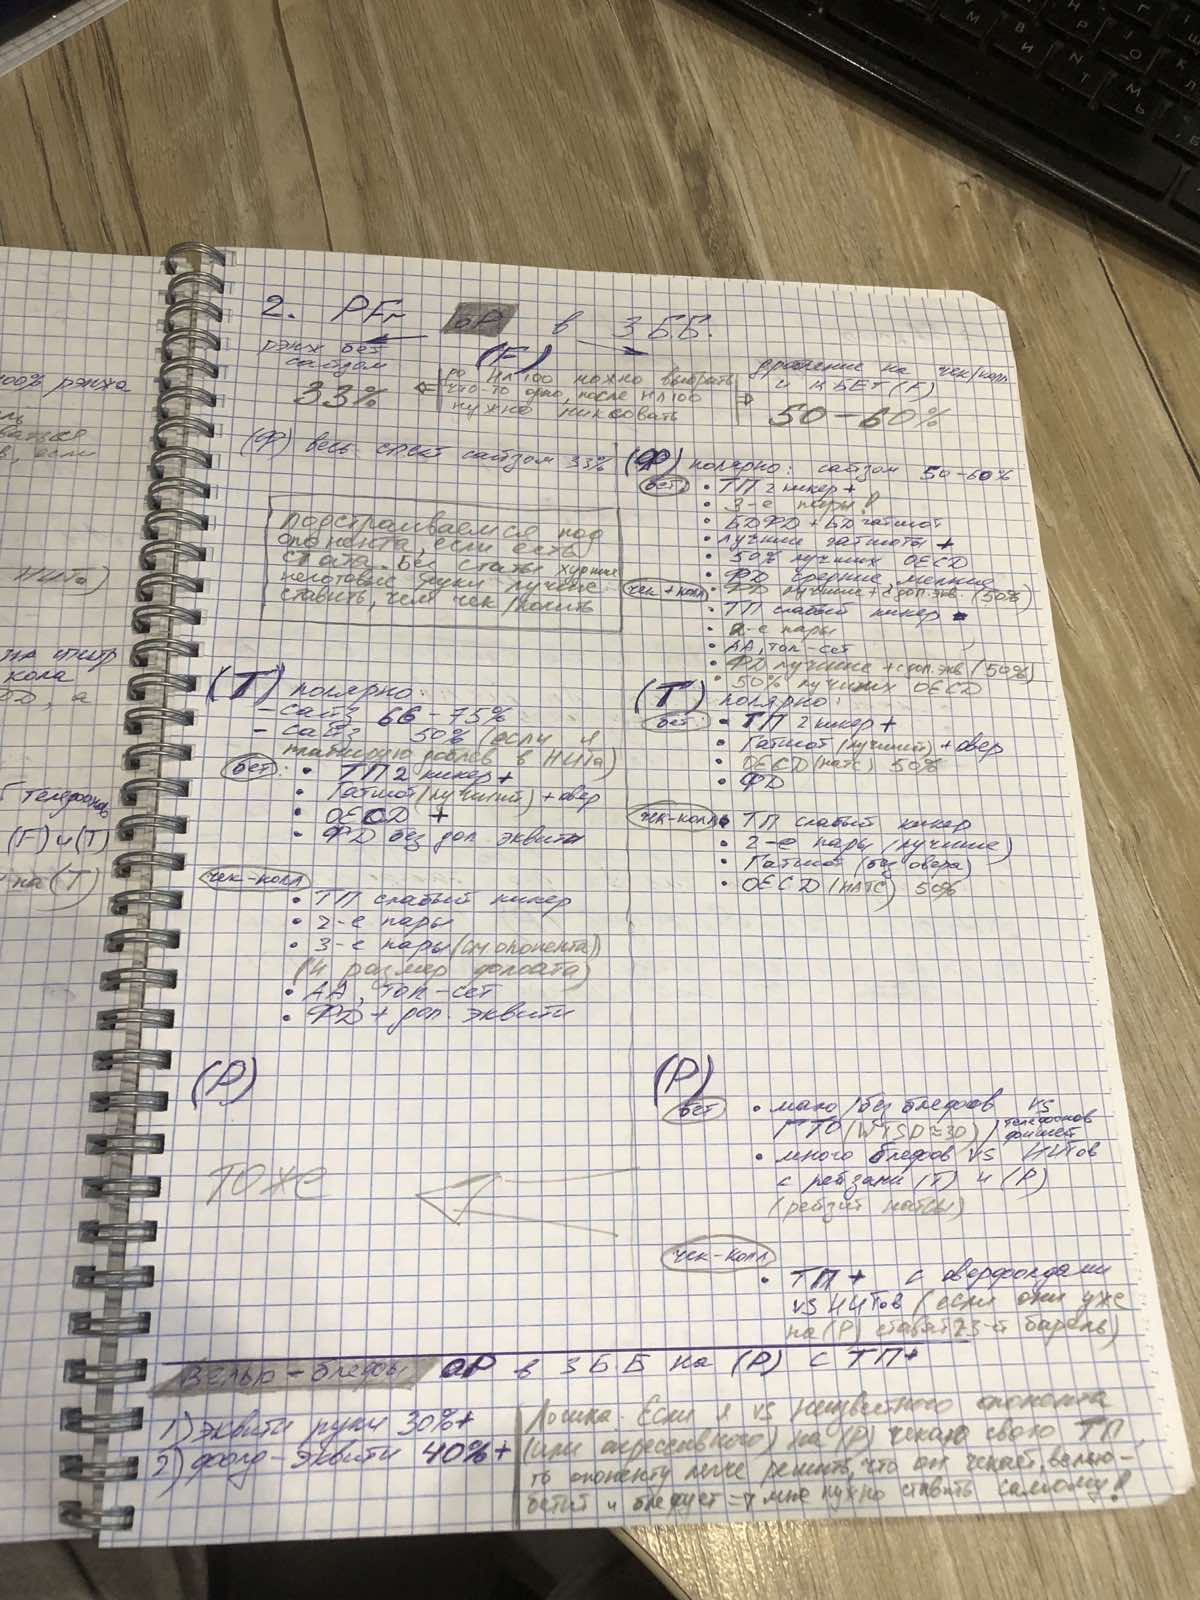 2. PFr оР в 3ББ.
(F)
рэнж бет
сайзом
33%
до НЛ100 можно выбрать
что-то одно, после НЛ100
нужно миксовать
давление на чек/колл
и КБЕТ (F)
50-60%
(Ф) весь спект сайзом 33%
Подстраиваемся под
опонента, если есть
стата. Без статы худшие
некоторые руки лучше
ставить, чем чек/колить
(Т) полярно:
- сайз 66-75%
- сайз 50% (если я
до в НИТа)
бет: • ТП 2 кикер+
• Гатшот (лучший) + овер
• OESD +
• ФД без доп эквити
чек-колл
• ТП слабый кикер
• 2-е пары
• 3-е пары (см. опонента)
(и размер донбета)
• АА, топ-сет
• ФД + доп. эквити
(Р)
тоже
(Ф) полярно: сайзом 50-60%
бет • ТП 2 кикер +
• 3-е пары!
• БДФД + БД гатшот
• лучшие гатшоты +
• 50% лучших OESD
• ФД средние, мелкие
чек+колл • ФД лучшие + с доп. экв. (50%)
• ТП слабый кикер
• 2-е пары
• АА, топ-сет
• ФД лучшие + с доп. экв (50%)
• 50% лучших OESD
(Т) полярно:
бет: • ТП 2 кикер +
• Гатшот (лучший) + овер
• OESD (натс) 50%
• ФД
чек-колл • ТП слабый кикер
• 2-е пары (лучшие)
• Гатшот (без овера)
• OESD (натс) 50%
(Р)
бет • мало/без блефов vs
ГТО (WTSD≈30) / телефонов фишей
• много блефов vs НИТов
с рейзами (Т) и (Р)
(рейзит натсы)
чек-колл
• ТП + с оверфолдами
vs НИТов (если они уже
на (Р) ставят 3-й барель)
Велью-блефы оР в 3ББ на (Р) с ТП+
1) эквити руки 30%+
2) фолд-эквити 40%+
Логика. Если я vs неизвестного опонента
(или агрессивного) на (Р) чекаю свою ТП,
то опоненту легче решить, что он чекает, велью-
бетит и блефует => мне нужно ставить самому!
100% рэнжа
если
НИТа)
на
кола
а
телефонов
(F) и (Т)
на (Т)